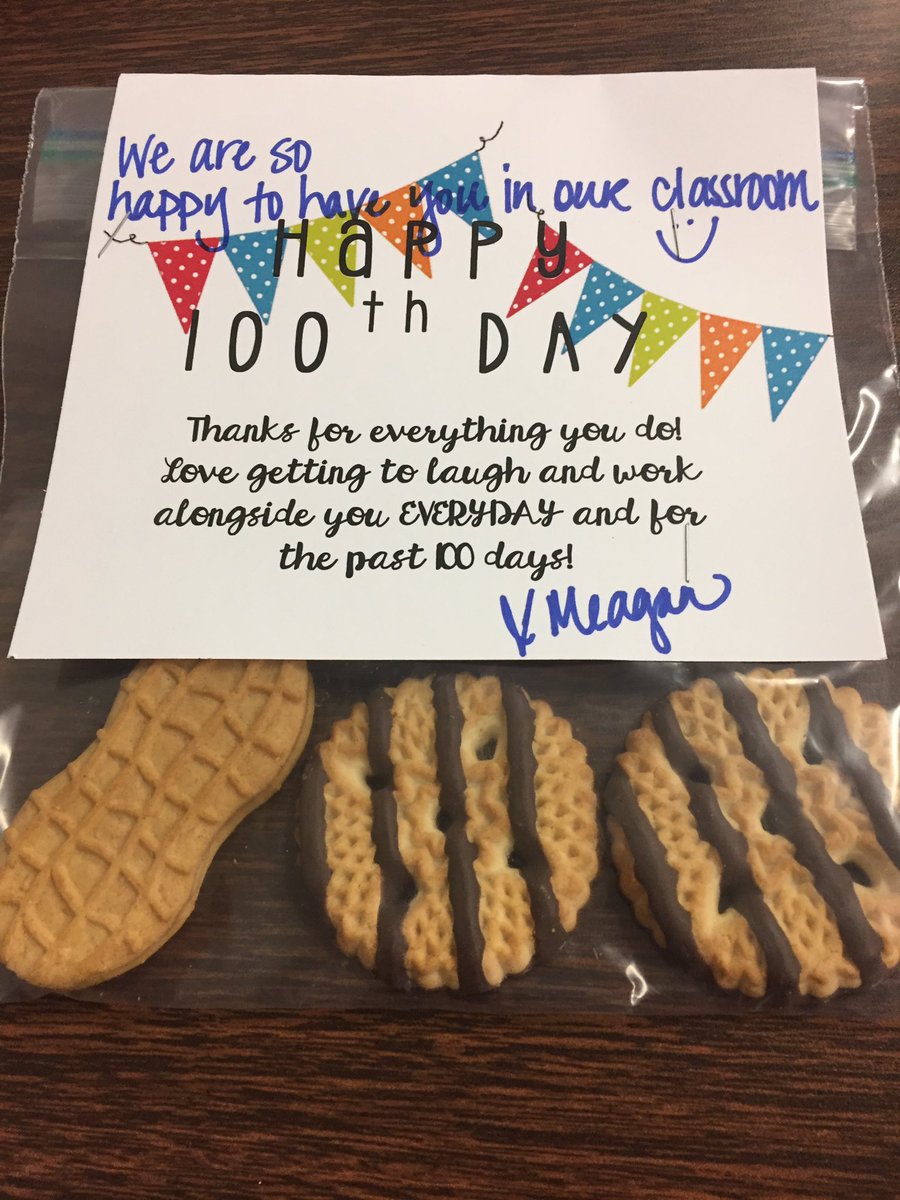 We are so
happy to have you in our classroom
HaPPy
100th DAY
Thanks for everything you do!
Love getting to laugh and work
alongside you EVERYDAY and for
the past 100 days!
Meagan